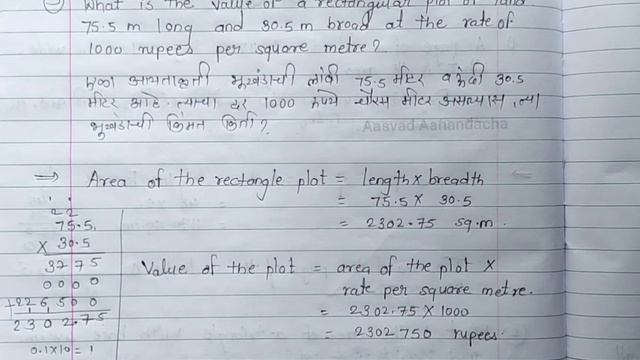 What is the value of a rectangular plot of land
75.5 m long and 30.5 m broad at the rate of
1000 rupees per square metre?
एका आयताकृती भूखंडाची लांबी 75.5 मीटर व रुंदी 30.5
मीटर आहे. त्याचा दर 1000 रुपये चौरस मीटर असल्यास, त्या
भूखंडाची किंमत किती?
Aasvad Aahandacha
⇒ Area of the rectangle plot = length x breadth
= 75.5 x 30.5
= 2302.75 sq.m.
2 2
75.5
x 30.5
3775
0000
+226500
2302.75
0.1x10=1
Value of the plot = area of the plot x
rate per square metre.
= 2302.75 x 1000
= 2302750 rupees.